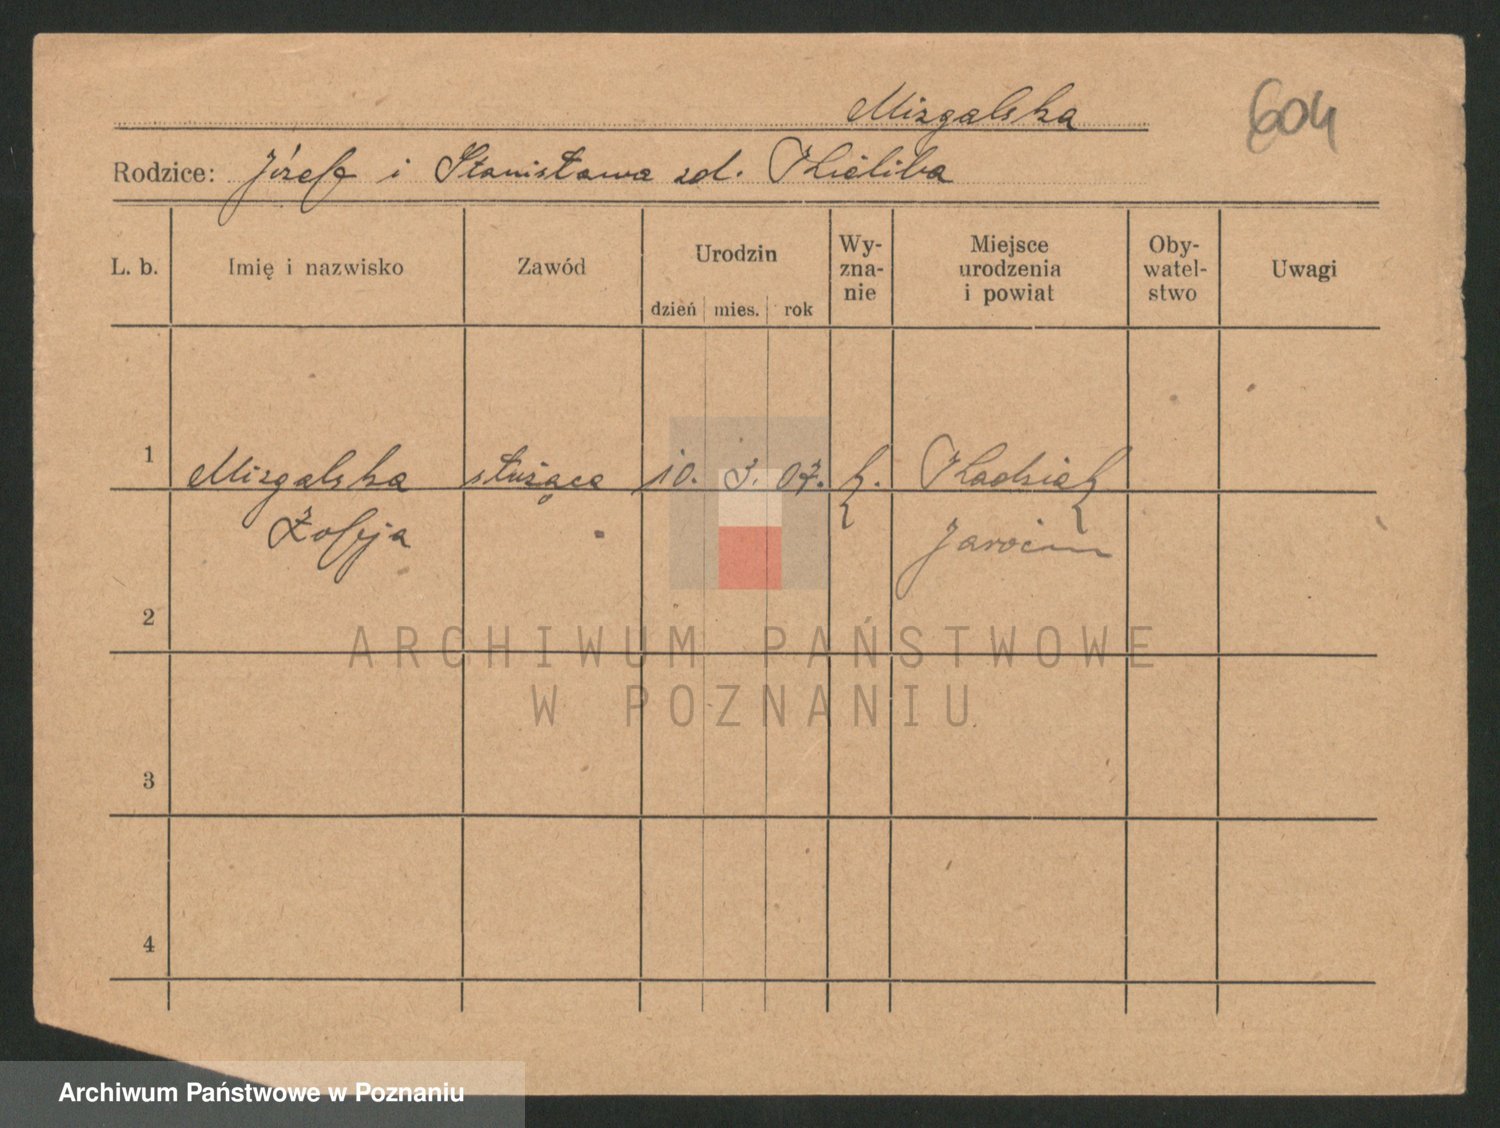 Mizgalska
604
Rodzice: Józef i Stanisława zd. Kieliba
L. b. Imię i nazwisko Zawód Urodzin dzień mies. rok Wy-zna-nie Miejsce urodzenia i powiat Oby-watel-stwo Uwagi
1 Mizgalska służąca 10. 3. 07. k. Kadziak
Zofja Jarocin
2
ARCHIWUM PAŃSTWOWE
W POZNANIU
3
4
Archiwum Państwowe w Poznaniu